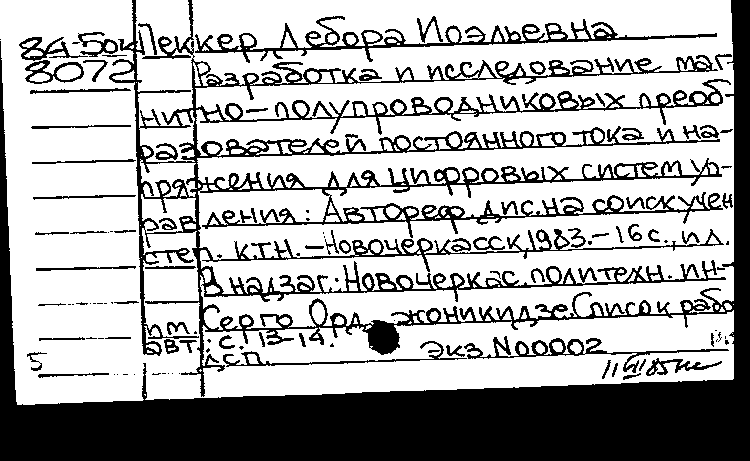 84-50к Пеккер, Дебора Иоэльевна
8072 Разработка и исследование маг-
нитно-полупроводниковых преоб-
разователей постоянного тока и на-
пряжения для цифровых систем уп-
равления: Автореф. дис. на соиск учен
степ. к.т.н. - Новочеркасск, 1983. - 16 с., ил.
В надзаг.: Новочеркас. политехн. ин-
им. Серго Орджоникидзе. Список рабо
авт.: с. 13-14. экз. N00002
5 ДСП.